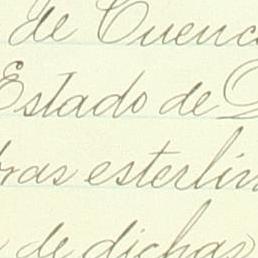 de Cuenca
Estado de
bras esterlin
de dichas